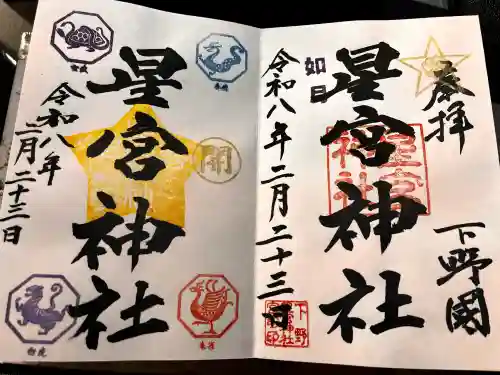 奉拝
下野國
星宮神社
星宮神社
如月
令和八年二月二十三日
青龍
開
朱雀
星宮神社
玄武
令和八年
二月二十三日
白虎